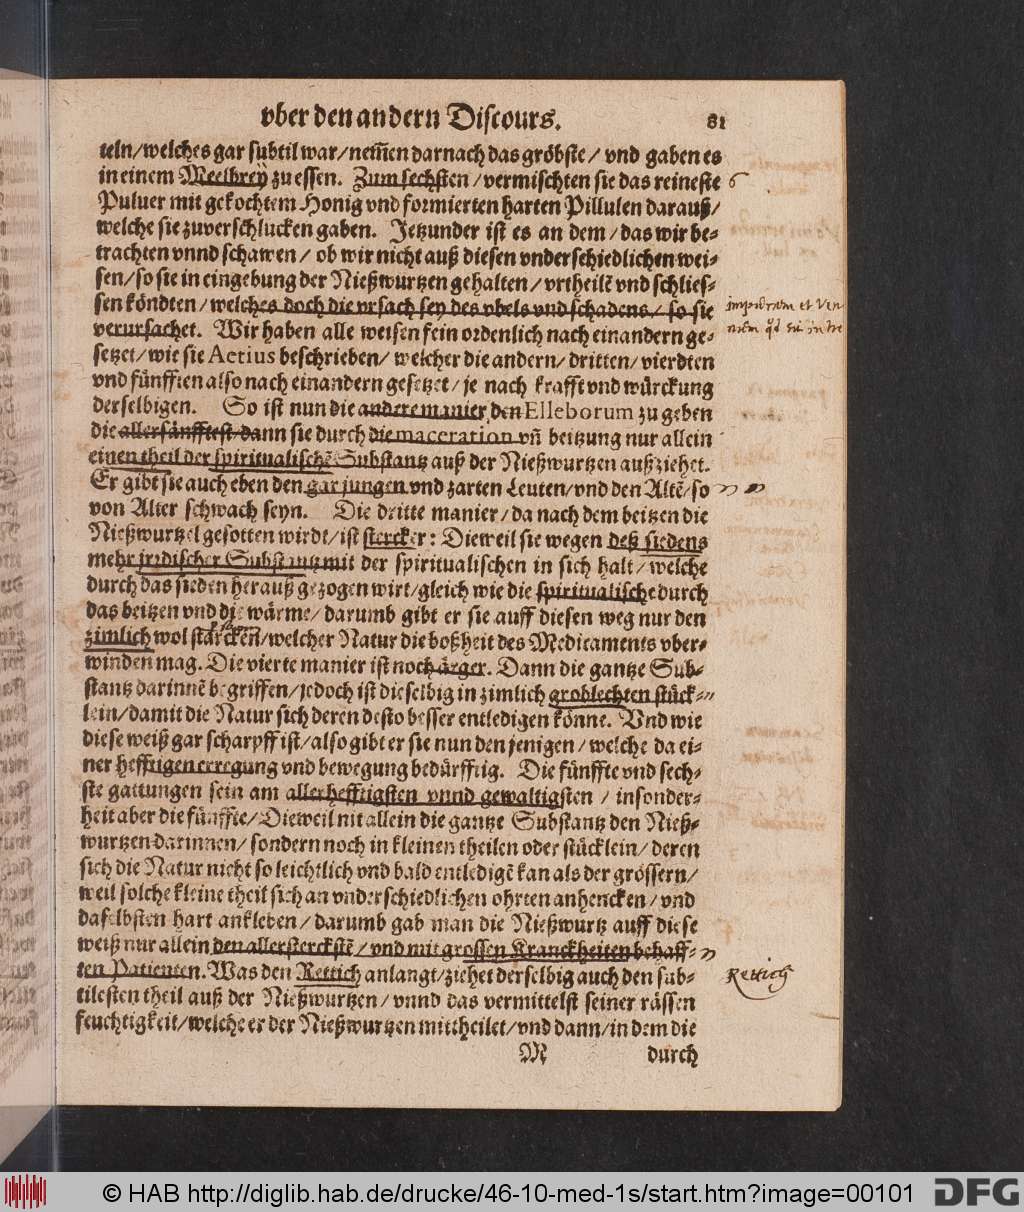 vber den andern Discours. 81
teln/welches gar subtil war/nem̃en darnach das gröbste/ vnd gaben es
in einem Meelbrey zu essen. Zum sechsten/vermischten sie das reineste
6
Puluer mit gekochtem Honig vnd formierten harten Pillulen darauß/
welche sie zuverschlucken gaben. Jetzunder ist es an dem/das wir be-
trachten vnnd schawen/ ob wir nicht auß diesen vnderschiedlichen wei-
sen/so sie in eingebung der Nießwurtzen gehalten/ vrtheilẽ vnd schlies-
sen köndten/welches doch die vrsach sey des vbels vnd schadens/ so sie
verursachet. Wir haben alle weisen fein ordenlich nach einandern ge-
setzet/wie sie Aetius beschrieben/ welcher die andern/dritten/vierdten
vnd fünfften also nach einandern gesetzet/je nach krafft vnd würckung
derselbigen. So ist nun die andere manier den Elleborum zu geben
die allersänfftest/dann sie durch die maceration vñ beitzung nur allein
einen theil der spiritualischẽ Substantz auß der Nießwurtzen außziehet.
Er gibt sie auch eben den gar jungen vnd zarten Leuten/vnd den Altẽ/so
von Alter schwach seyn. Die dritte manier/da nach dem beitzen die
Nießwurtzel gesotten wirdt/ist stercker: Dieweil sie wegen deß siedens
mehr jrrdischer Substantz mit der spiritualischen in sich halt/welche
durch das sieden herauß gezogen wirt/gleich wie die spiritualische durch
das beitzen vnd die wärme/darumb gibt er sie auff diesen weg nur den
zimlich wol stärcken/welcher Natur die boßheit des Medicaments vber-
winden mag. Die vierte manier ist noch ärger. Dann die gantze Sub-
stantz darinnẽ begriffen/jedoch ist dieselbig in zimlich groblechten stück-
lein/damit die Natur sich deren desto besser entledigen könne. Vnd wie
diese weiß gar scharpff ist/also gibt er sie nun den jenigen/welche da ei-
ner hefftigen erregung vnd bewegung bedürfftig. Die fünffte vnd sech-
ste gattungen sein am allerhefftigsten vnnd gewaltigsten / insonder-
heit aber die fünffte/Dieweil nit allein die gantze Substantz den Nieß-
wurtzen darinnen/sondern noch in kleinen theilen oder stücklein/deren
sich die Natur nicht so leichtlich vnd bald entledigẽ kan als der grössern/
weil solche kleine theil sich an vnderschiedlichen ohrten anhencken/vnd
daselbsten hart ankleben/darumb gab man die Nießwurtz auff diese
weiß nur allein den allersterckstẽ/vnd mit grossen Kranckheiten behaff-
ten Patienten. Was den Rettich anlangt/ziehet derselbig auch den sub-
Rettich
tilesten theil auß der Nießwurtzen/vnnd das vermittelst seiner rässen
feuchtigkeit/welche er der Nießwurtzen mittheilet/vnd dann/in dem die
M durch
© HAB http://diglib.hab.de/drucke/46-10-med-1s/start.htm?image=00101 DFG